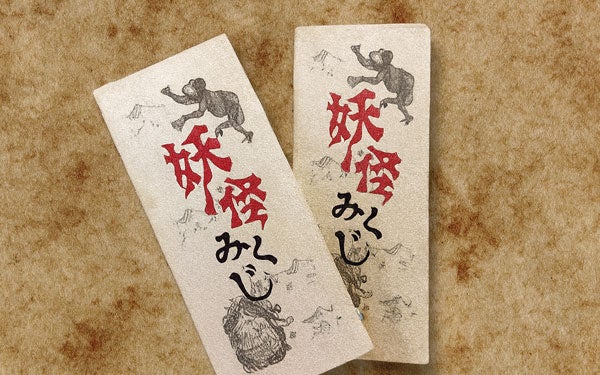 妖怪みくじ
妖怪みくじ